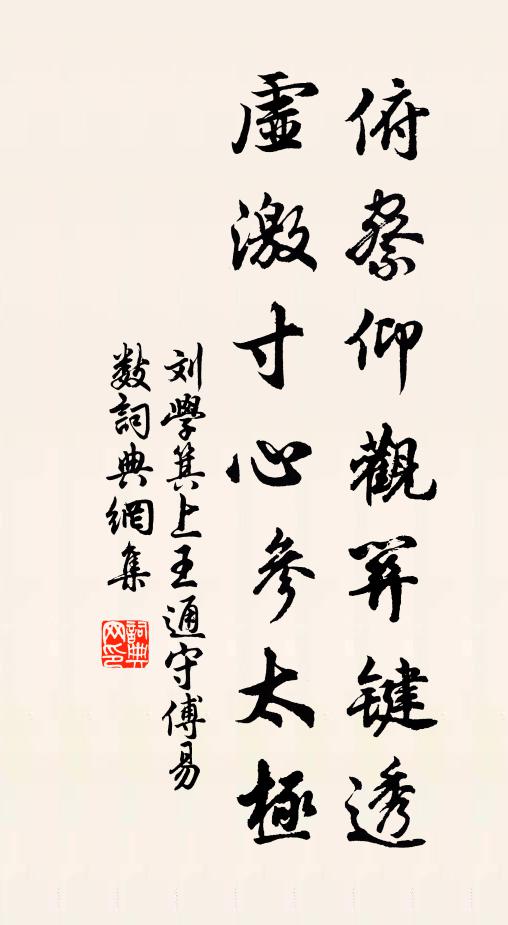 俯察仰觀關鍵透
虛激寸心參太極
刘學箕上王通守傅易
数詞典網集
詞典网印